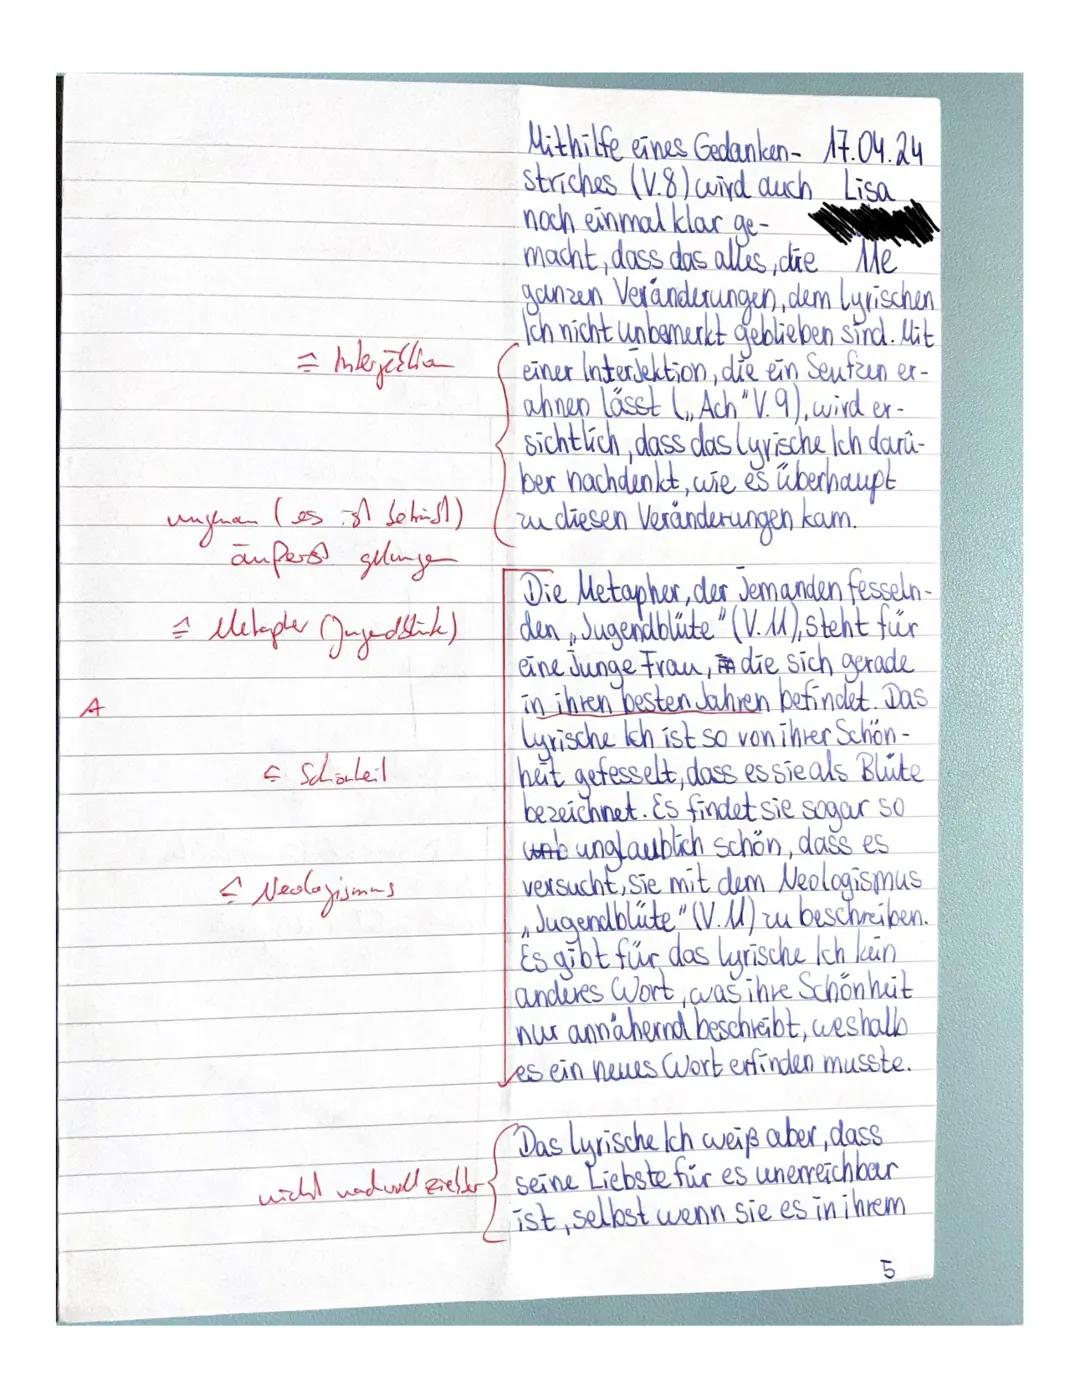 Mithilfe eines Gedanken- 17.04.24
striches (V.8) wird auch Lisa
noch einmal klar ge-
macht, dass das alles, die 11e
ganzen Veränderungen, dem lyrischen
Ich nicht unbemerkt geblieben sind. Mit
≙ Interjektion
einer Interjektion, die ein Seufzen er-
ahnen lässt („Ach" V.9), wird er-
sichtlich, dass das lyrische Ich darü-
ber nachdenkt, wie es überhaupt
ungenau (es ist
zu diesen Veränderungen kam.
äußerst gelungen
Die Metapher, der jemanden fesseln-
≙ Metapher
den „Jugendblüte" (V.11), steht für
eine junge Frau, die sich gerade
A
in ihren besten Jahren befindet. Das
lyrische Ich ist so von ihrer Schön-
≙ Schönheit
heit gefesselt, dass es sie als Blüte
bezeichnet. Es findet sie sogar so
unglaublich schön, dass es
≙ Neologismus
versucht, sie mit dem Neologismus
„Jugendblüte" (V.11) zu beschreiben.
Es gibt für das lyrische Ich kein
anderes Wort, was ihre Schönheit
nur annähernd beschreibt, weshalb
es ein neues Wort erfinden musste.
Das lyrische Ich weiß aber, dass
nicht nachvollziehbar
seine Liebste für es unerreichbar
ist, selbst wenn sie es in ihrem
5